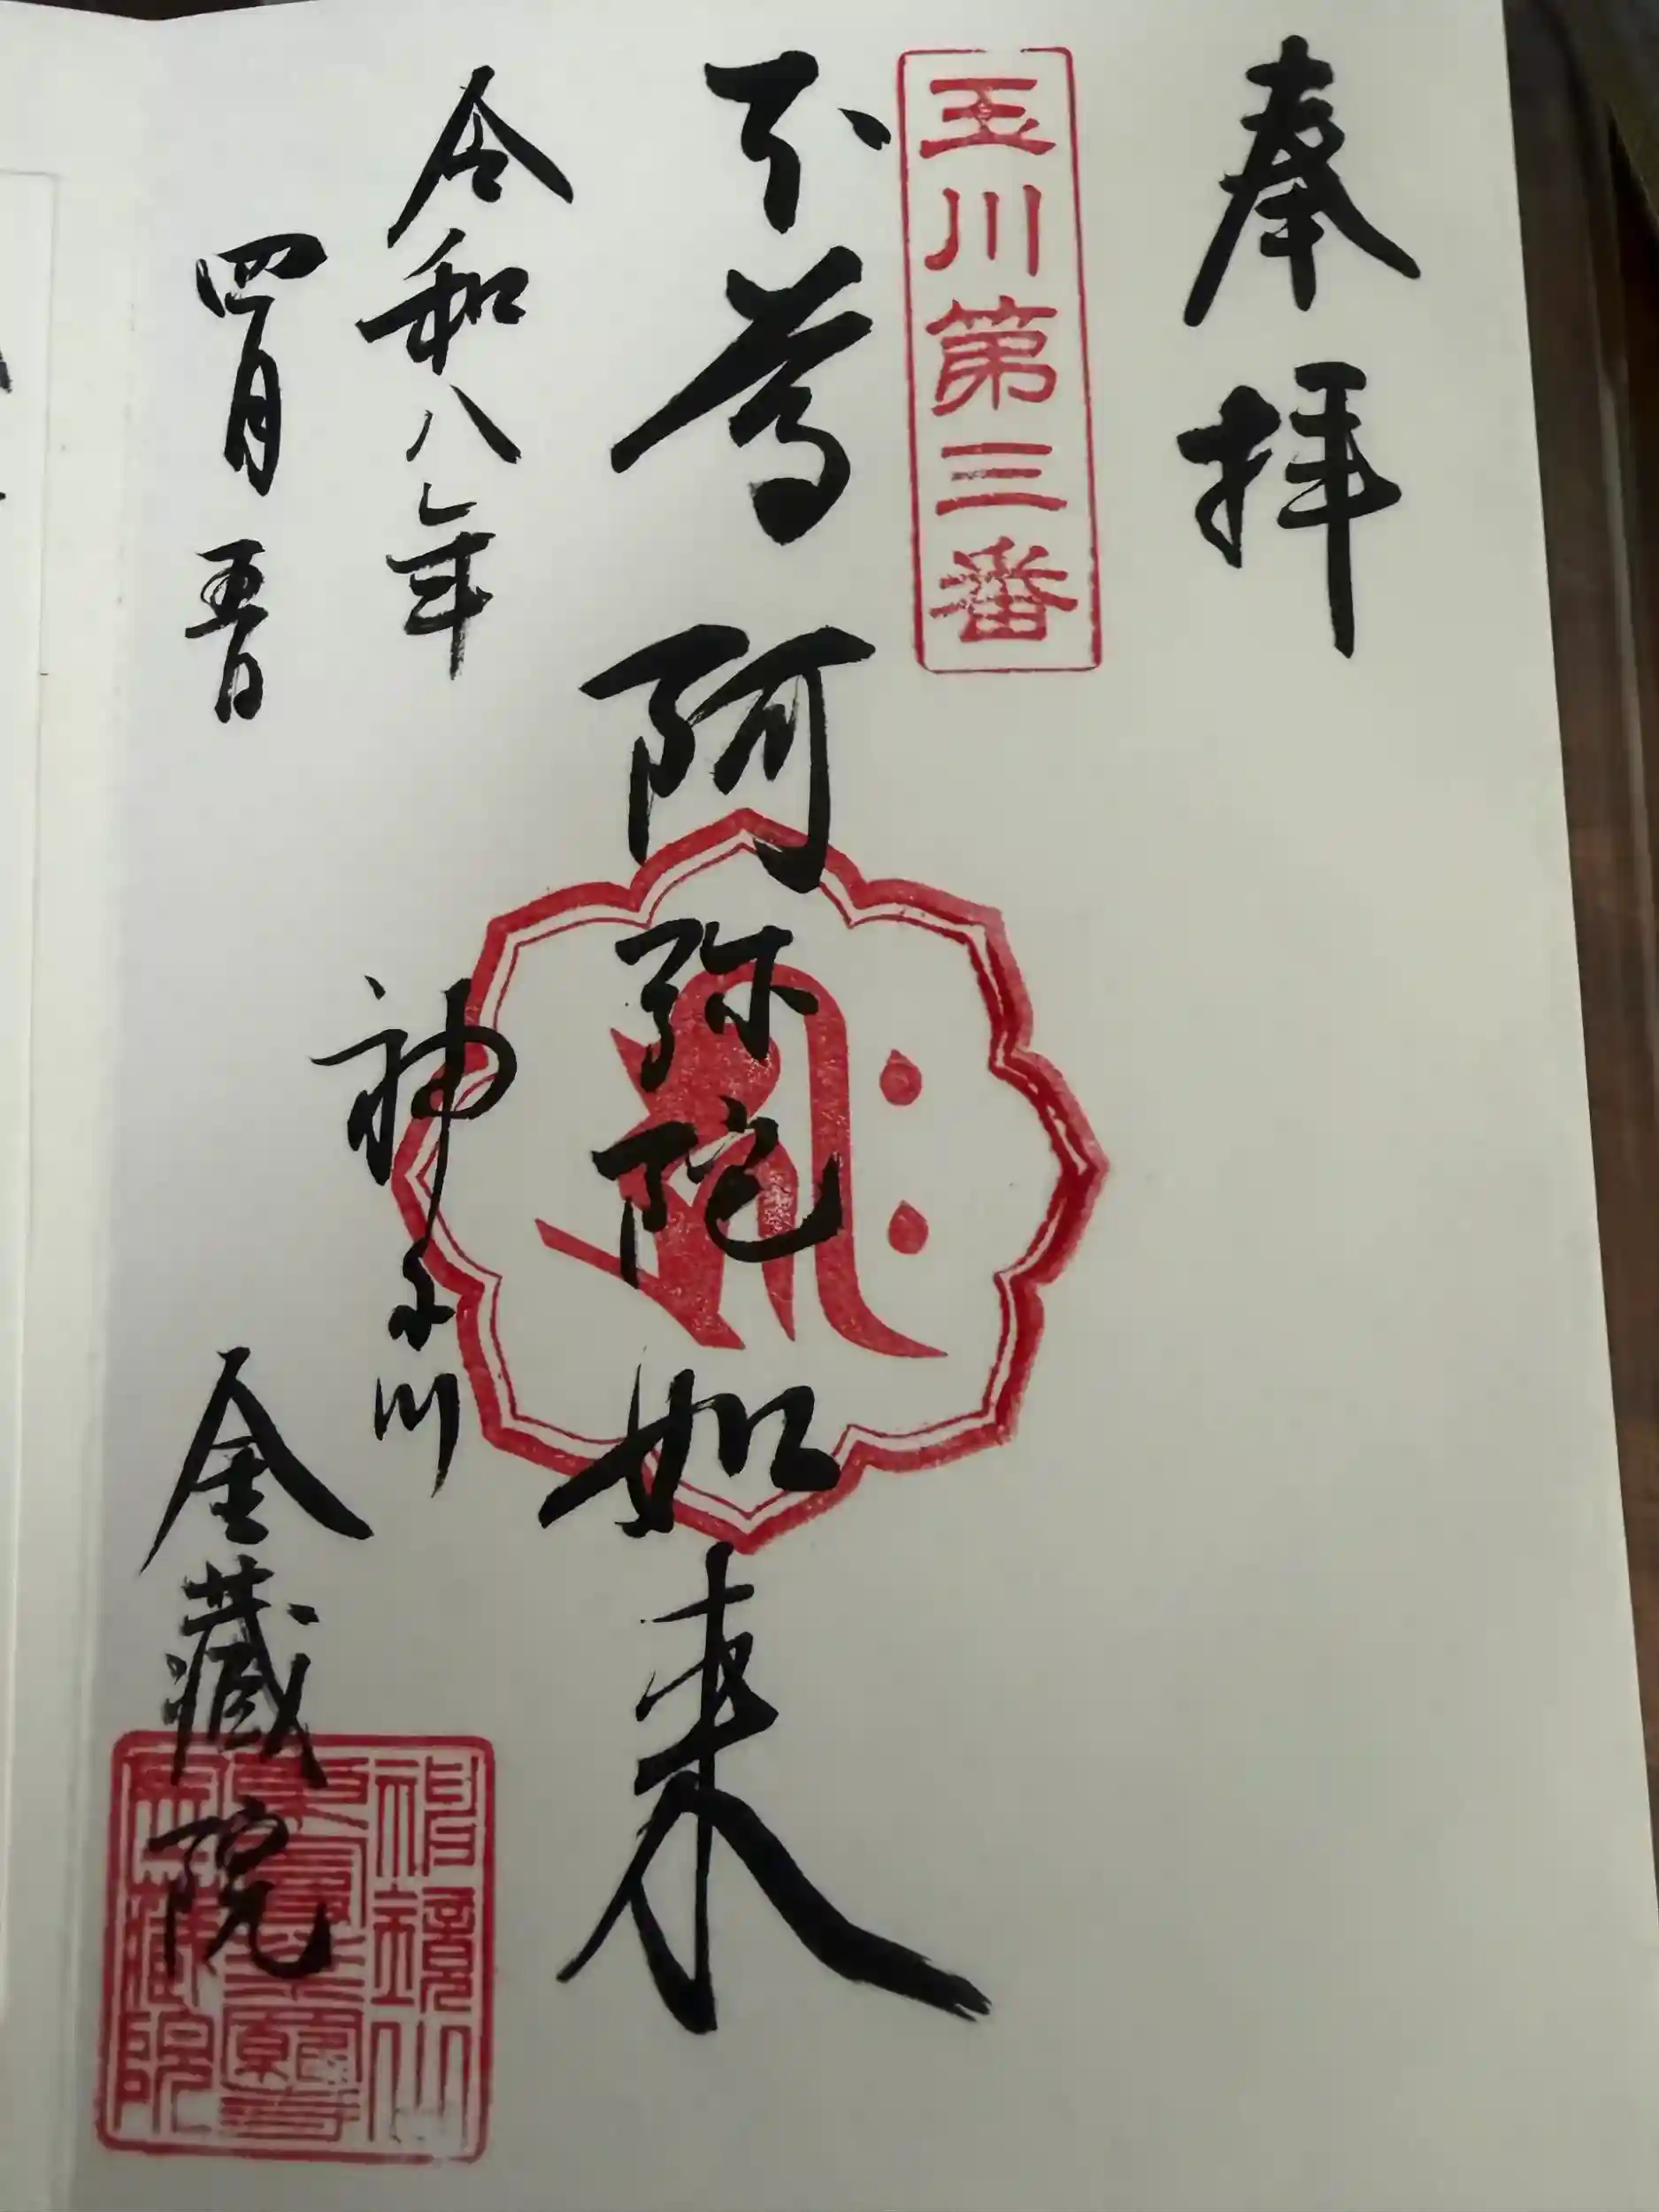 奉拝
玉川第三番
本尊 阿弥陀如来
令和八年
四月五日
神奈川
金蔵院
神鏡山
金藏院